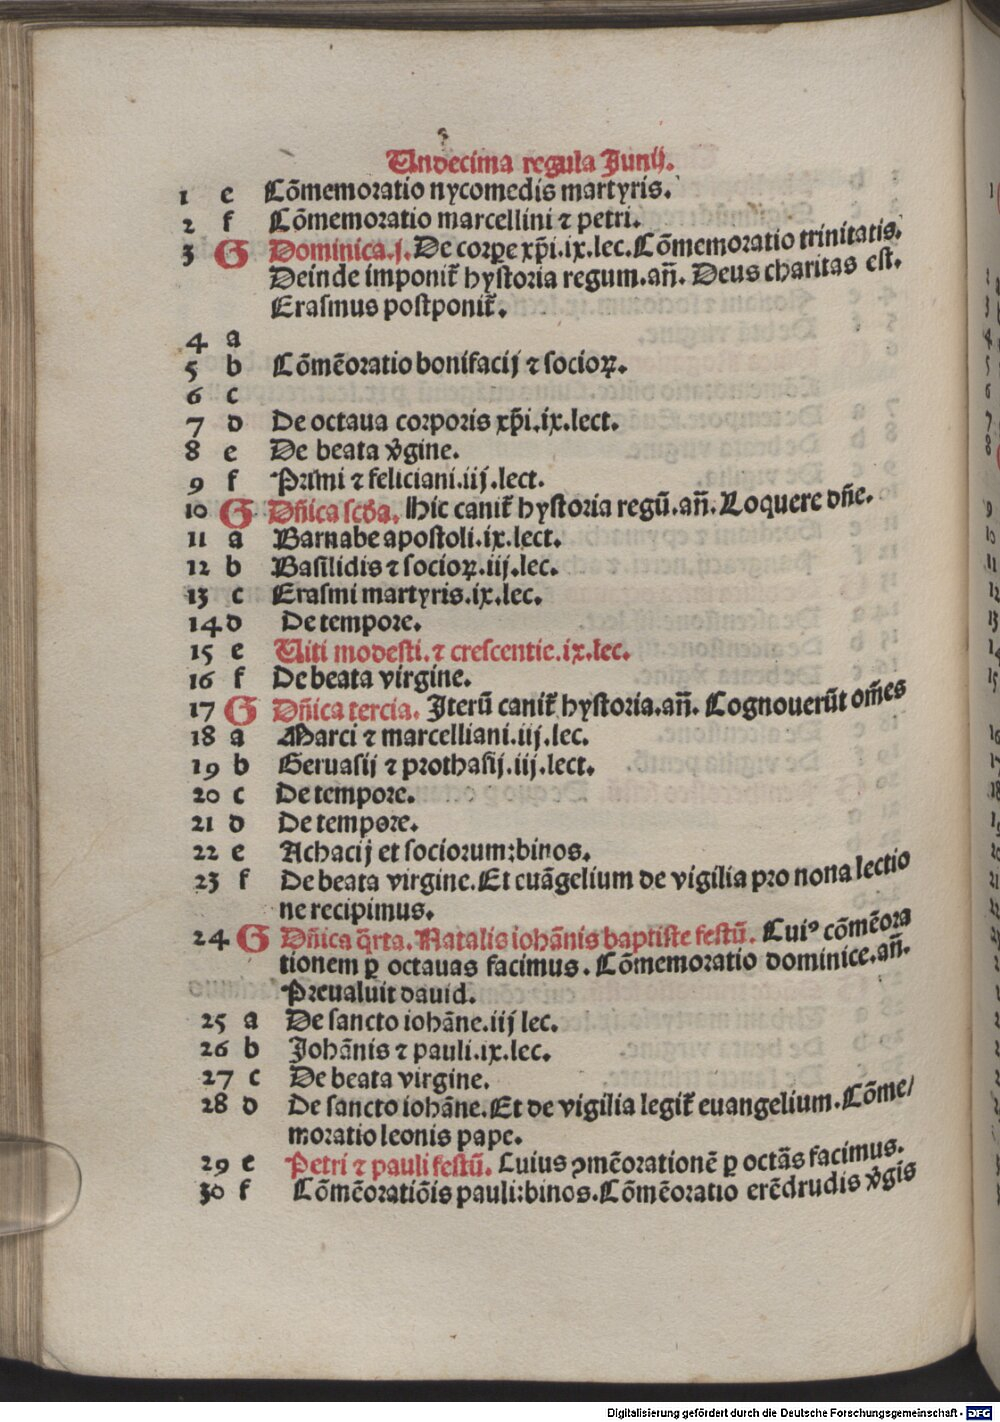 Undecima regula Junij.
1 e Cõmemoratio nycomedis martyris.
2 f Cõmemoratio marcellini ⁊ petri.
3 G Dominica.j. De corꝑe xp̄i.ix.lec.Cõmemoratio trinitatis.
Deinde imponit̃ hystoria regum.añ. Deus charitas est.
Erasmus postponit̃.
4 a
5 b Cõmẽoratio bonifacij ⁊ socioꝝ.
6 c
7 d De octaua corporis xp̄i.ix.lect.
8 e De beata v̾gine.
9 f Primi ⁊ feliciani.iij.lect.
10 G Dñica scđa. Hic canit̃ hystoria regũ.añ. Loquere dñe.
11 a Barnabe apostoli.ix.lect.
12 b Basilidis ⁊ socioꝝ.iij.lec.
13 c Erasmi martyris.ix.lec.
14 d De tempore.
15 e Uiti modesti.⁊ crescentie.ix.lec.
16 f De beata virgine.
17 G Dñica tercia. Iterũ canit̃ hystoria.añ. Cognouerũt om̃es
18 a Marci ⁊ marcelliani.iij.lec.
19 b Geruasij ⁊ prothasij.iij.lect.
20 c De tempore.
21 d De tempore.
22 e Achacij et sociorum:binos.
23 f De beata virgine.Et euãgelium de vigilia pro nona lectio
ne recipimus.
24 G Dñica q̃rta. Natalis iohãnis baptiste festũ. Cuiꝰ cõmẽora
tionem ꝑ octauas facimus. Cõmemoratio dominice.añ.
Preualuit dauid.
25 a De sancto iohãne.iij lec.
26 b Johãnis ⁊ pauli.ix.lec.
27 c De beata virgine.
28 d De sancto iohãne.Et de vigilia legit̃ euangelium.Cõme/
moratio leonis pape.
29 e Petri ⁊ pauli festũ. Cuius ꝯmẽorationẽ ꝑ octãs facimus.
30 f Cõmẽoratiõis pauli:binos.Cõmẽoratio erẽdrudis v̾gis
Digitalisierung gefördert durch die Deutsche Forschungsgemeinschaft - DFG